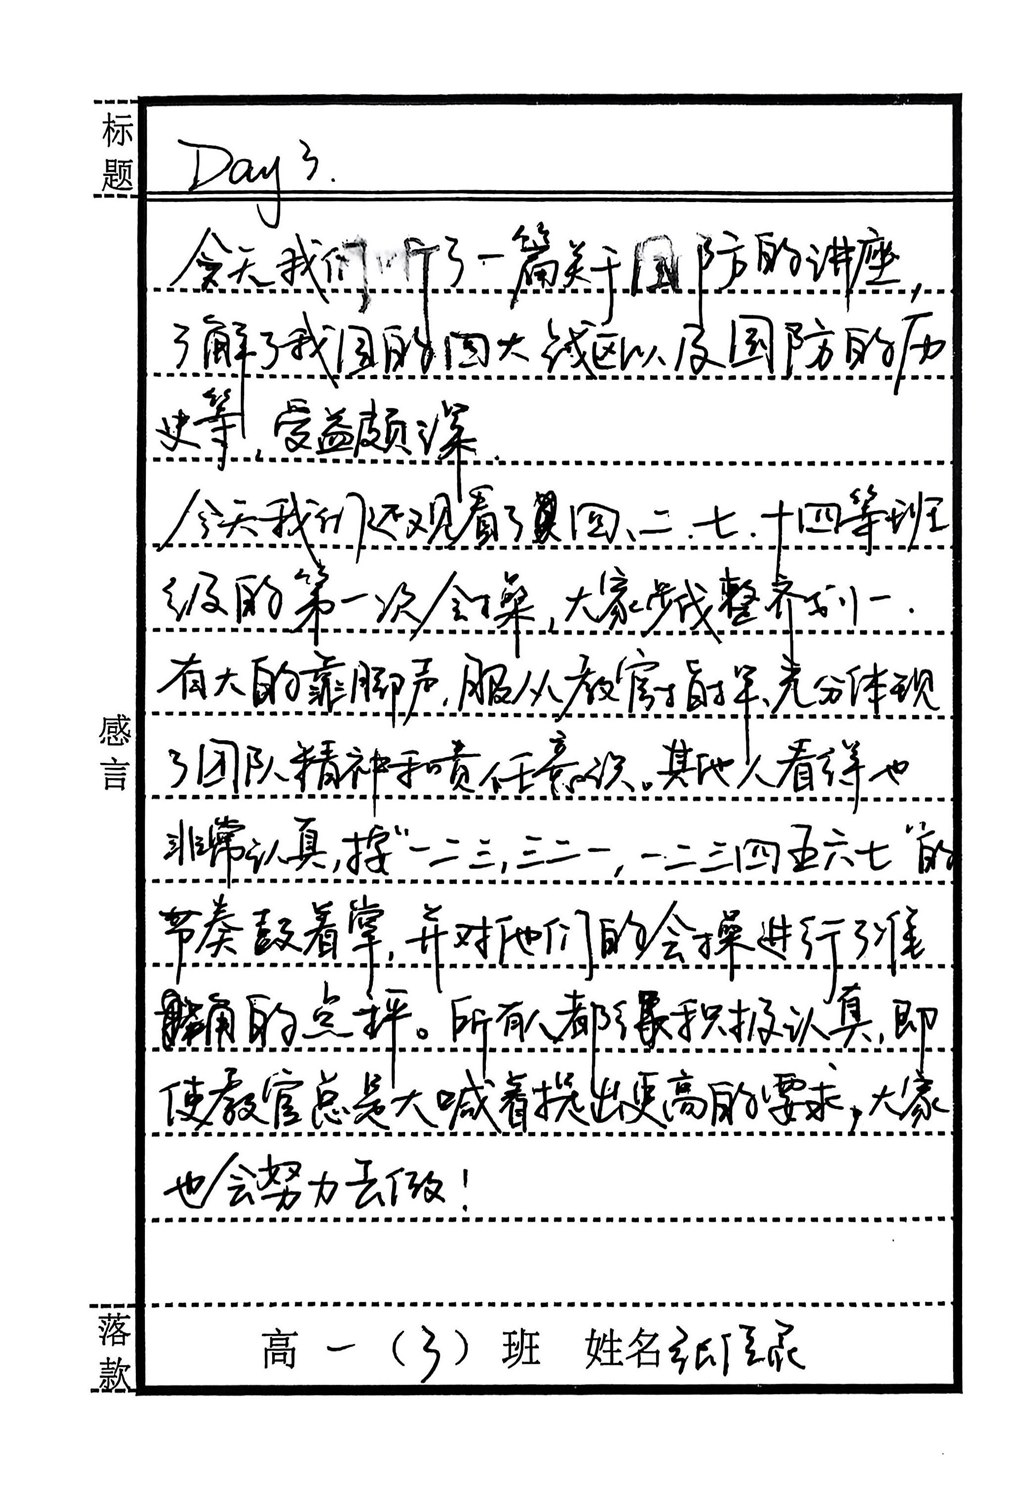 标题
Day 3.
今天我们听了一篇关于国防的讲座,
了解了我国的四大战区以及国防的历
史等,受益颇深.
今天我们还观看了四、二.七.十四等班
级的第一次会操,大家步伐整齐划一.
有大的靠脚声,服从教官指挥、充分体现
感言
了团队精神和责任意识。其他人看得也
非常认真,按“一二三,三二一,一二三四五六七”的
节奏鼓着掌,并对他们的会操进行了准
确的点评。所有人都很积极认真,即
使教官总是大喊着提出更高的要求,大家
也会努力去做!
落款
高一(3)班 姓名